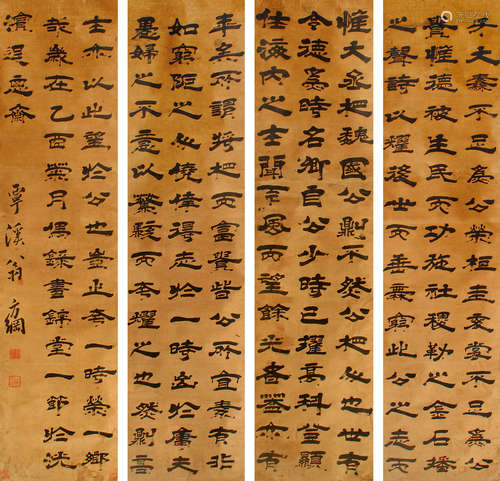 牙大纛不足為公榮桓圭袞冕不足為公
貴惟德被生民而功施社稷勒之金石播
之聲詩以耀後世而垂無窮此公之志而
惟大丞相魏國公則不然公相人也世有
令德為時名卿自公少時已擢高科登顯
仕海內之士聞下風而望餘光者蓋亦有
年矣所謂將相而富貴皆公所宜素有非
如窮阨之人僥倖得志於一時出於庸夫
愚婦之不意以驚駭而夸耀之也然則高
士亦以此望於公也豈止夸一時榮一鄉
哉歲在乙酉月偶錄晝錦堂一節於
之齋
覃溪翁方綱